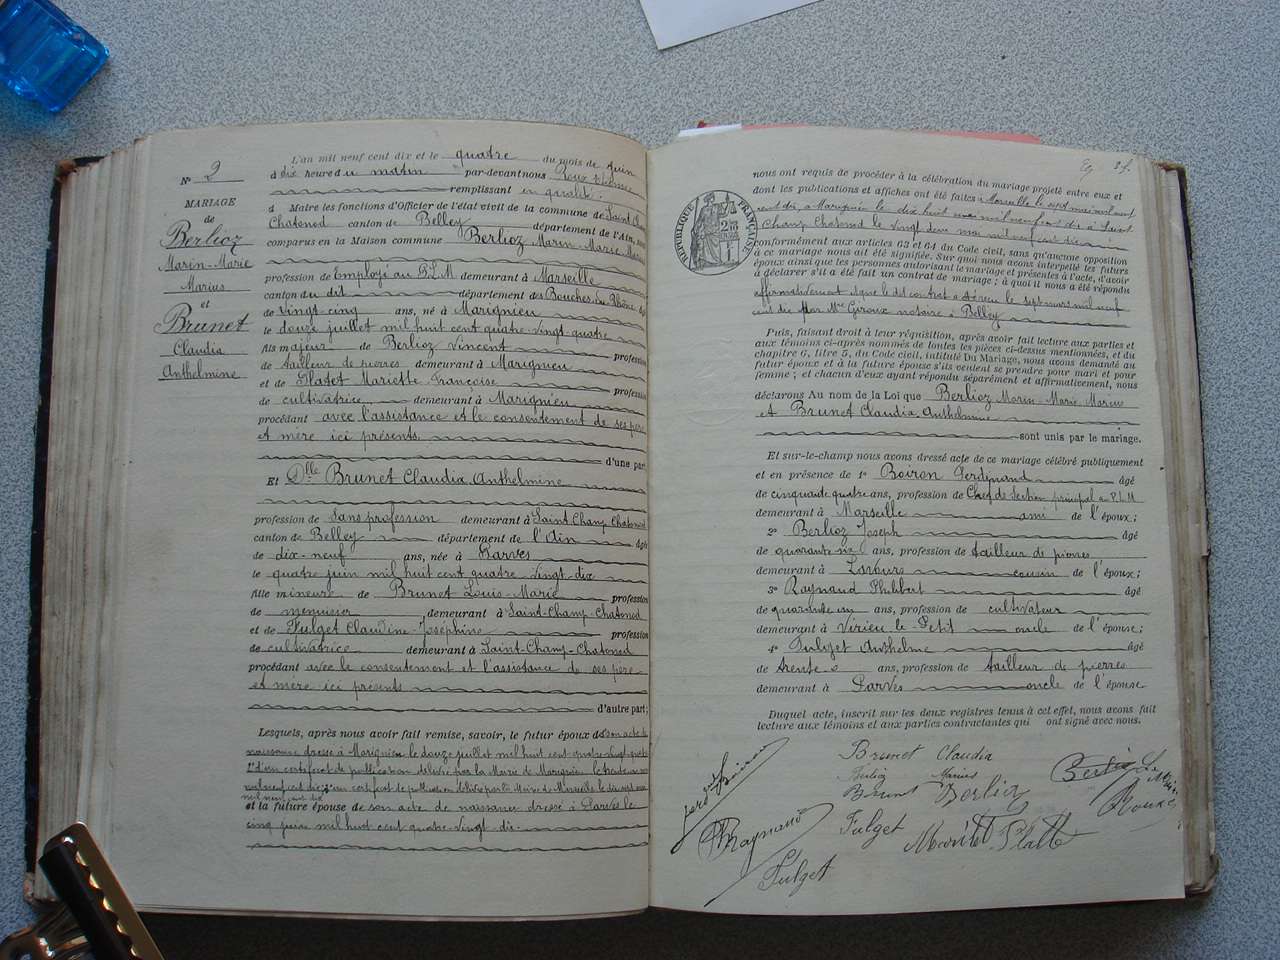 N° 2
MARIAGE
de
Berlioz
Marin-Marie
Marius
et
Brunet
Claudia
Anthelmine
L'an mil neuf cent dix et le quatre du mois de juin
à dix heure du matin par-devant nous Roux
remplissant en qualité
d Maire les fonctions d'Officier de l'état civil de la commune de Saint-Champ
Chatonod canton de Belley département de l'Ain, sont
comparus en la Maison commune Berlioz Marin-Marie Marius
profession de Employé au P.L.M. demeurant à Marseille
canton du dit département des Bouches du Rhône âgé
de Vingt-cinq ans, né à Marignieu
le douze juillet mil huit cent quatre-vingt-quatre
fils majeur de Berlioz Vincent profession
de tailleur de pierres demeurant à Marignieu
et de Platet Mariette Françoise profession
de cultivatrice demeurant à Marignieu
procédant avec l'assistance et le consentement de ses père
et mère ici présents.
d'une part
Et Dlle Brunet Claudia Anthelmine
profession de Sans profession demeurant à Saint-Champ Chatonod
canton de Belley département de l'Ain âgée
de dix-neuf ans, née à Parves
le quatre juin mil huit cent quatre Vingt-dix
fille mineure de Brunet Louis-Marie profession
de menuisier demeurant à Saint-Champ-Chatonod
et de Fulget Claudine-Joséphine profession
de cultivatrice demeurant à Saint-Champ-Chatonod
procédant avec le consentement et l'assistance de ses père
et mère ici présents
d'autre part;
Lesquels, après nous avoir fait remise, savoir, le futur époux de son acte de
naissance dressé à Marignieu le douze juillet mil huit cent quatre vingt quatre
d'un certificat de publication délivré par la Mairie de Marignieu le
mil neuf cent dix, un certificat de publication délivré par la Mairie de Marseille le
mil neuf cent dix
et la future épouse de son acte de naissance dressé à Parves le
cinq juin mil huit cent quatre-vingt dix.
2 f.
RÉPUBLIQUE FRANÇAISE
nous ont requis de procéder à la célébration du mariage projeté entre eux et
dont les publications et affiches ont été faites à Marseille le
cent dix, à Marignieu le dix huit mai mil neuf cent dix à Saint
Champ Chatonod le vingt deux mai mil neuf cent dix
conformément aux articles 63 et 64 du Code civil, sans qu'aucune opposition
à ce mariage nous ait été signifiée. Sur quoi nous avons interpellé les futurs
époux ainsi que les personnes autorisant le mariage et présentes à l'acte, d'avoir
à déclarer s'il a été fait un contrat de mariage ; à quoi il nous a été répondu
affirmativement et que le dit contrat a été reçu le sept mars mil neuf
cent dix par Me Giroux notaire à Belley
Puis, faisant droit à leur réquisition, après avoir fait lecture aux parties et
aux témoins ci-après nommés de toutes les pièces ci-dessus mentionnées, et du
chapitre 6, titre 5, du Code civil, intitulé Du Mariage, nous avons demandé au
futur époux et à la future épouse s'ils veulent se prendre pour mari et pour
femme ; et chacun d'eux ayant répondu séparément et affirmativement, nous
déclarons Au nom de la Loi que Berlioz Marin-Marie-Marius
et Brunet Claudia Anthelmine
sont unis par le mariage.
Et sur-le-champ nous avons dressé acte de ce mariage célébré publiquement
et en présence de 1° Boiron Ferdinand âgé
de cinquante quatre ans, profession de Chef de Section principal au P.L.M
demeurant à Marseille ami de l'époux;
2° Berlioz Joseph âgé
de quarante six ans, profession de tailleur de pierres
demeurant à cousin de l'époux;
3° Raynaud Philibert âgé
de quarante un ans, profession de cultivateur
demeurant à Virieu-le-Petit oncle de l'épouse;
4° Fulget Anthelme âgé
de trente ans, profession de tailleur de pierres
demeurant à Parves oncle de l'épouse
Duquel acte, inscrit sur les deux registres tenus à cet effet, nous avons fait
lecture aux témoins et aux parties contractantes qui ont signé avec nous.
Brunet Claudia
Berlioz Marius
Brunet Berlioz
Fulget Mariette Platet
Raynaud
Fulget
Roux